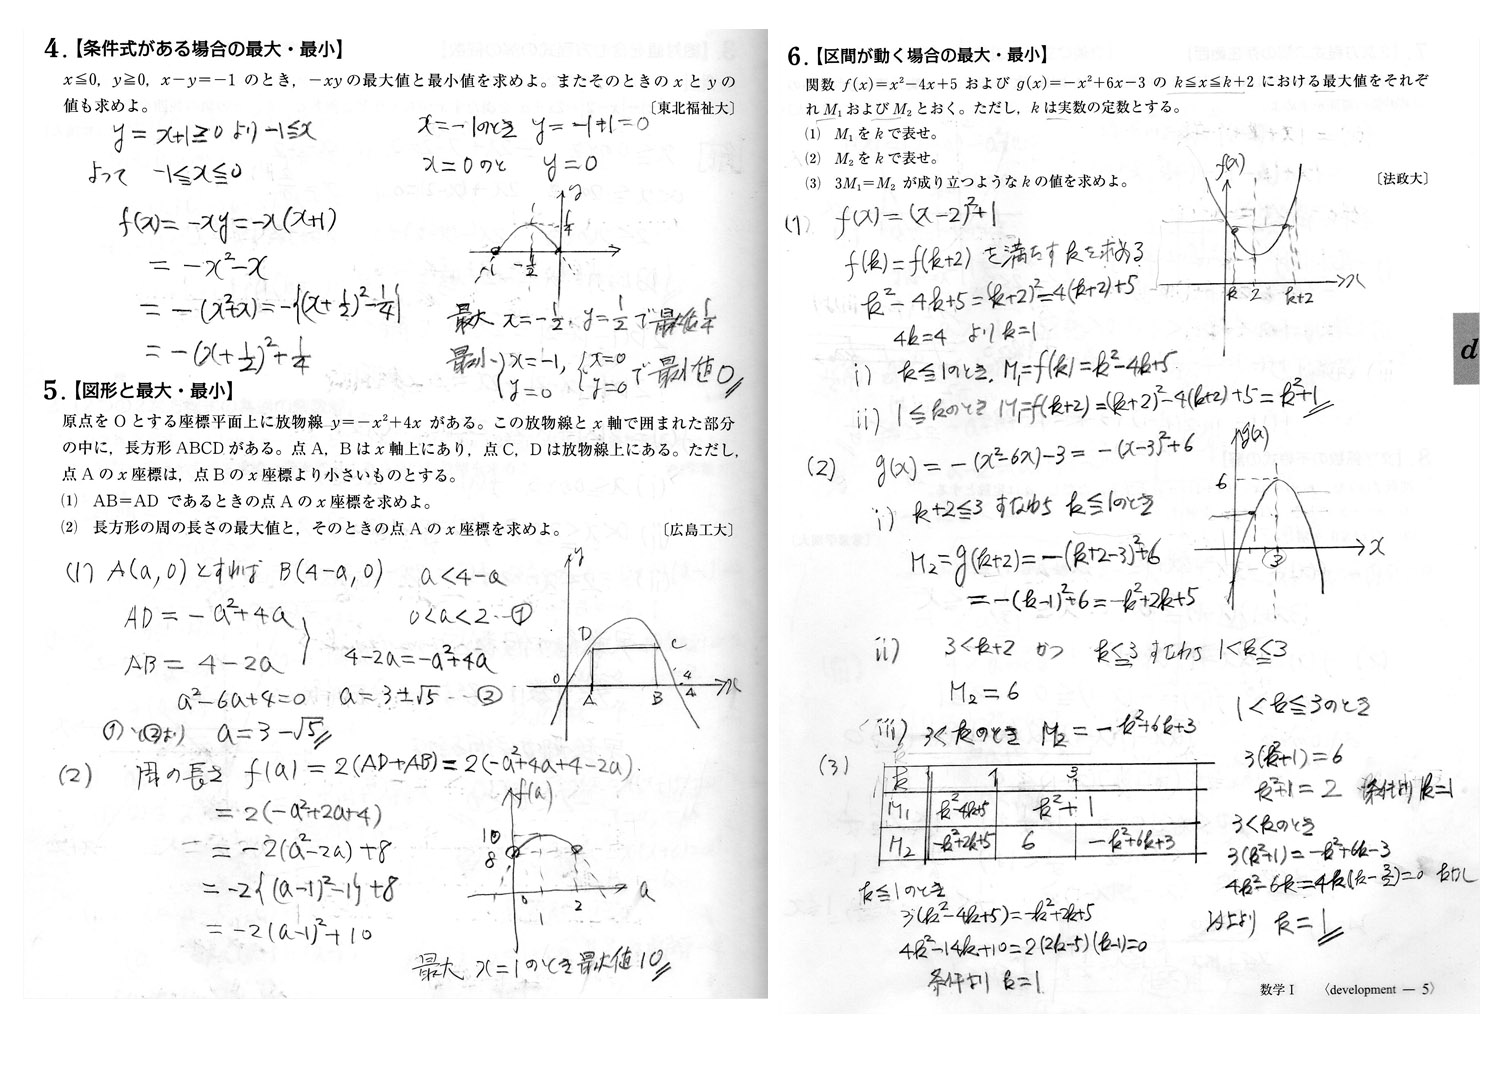 4.【条件式がある場合の最大・最小】
x≦0, y≧0, x−y=−1 のとき, −xyの最大値と最小値を求めよ。またそのときのxとyの
値も求めよ。 〔東北福祉大〕
y = x+1≧0 より −1≦x
よって −1≦x≦0
x=−1のとき y=−1+1=0
x=0のと y=0
f(x)= −xy=−x(x+1)
= −x²−x
= −(x²+x)=−{(x+1/2)²−1/4}
= −(x+1/2)²+1/4
y
1/4
−1 −1/2 x
最大 x=−1/2, y=1/2 で最大値1/4
最小 {x=−1, y=0 {x=0 y=0 で最小値0
5.【図形と最大・最小】
原点をOとする座標平面上に放物線 y=−x²+4x がある。この放物線とx軸で囲まれた部分
の中に, 長方形ABCDがある。点A, Bはx軸上にあり, 点C, Dは放物線上にある。ただし,
点Aのx座標は, 点Bのx座標より小さいものとする。
(1) AB=AD であるときの点Aのx座標を求めよ。
(2) 長方形の周の長さの最大値と, そのときの点Aのx座標を求めよ。 〔広島工大〕
(1) A(a,0)とすれば B(4−a,0) a<4−a
AD=−a²+4a 0<a<2 …①
AB= 4−2a 4−2a=−a²+4a
a²−6a+4=0 a=3±√5 … ②
①, ②より a=3−√5
y
D C
0 A B 4 x
(2) 周の長さ f(a)=2(AD+AB)=2(−a²+4a+4−2a).
=2(−a²+2a+4)
=−2(a²−2a)+8
=−2{(a−1)²−1}+8
=−2(a−1)²+10
f(a)
10
8
0 1 2 a
最大 x=1のとき最大値10
6.【区間が動く場合の最大・最小】
関数 f(x)=x²−4x+5 および g(x)=−x²+6x−3 の k≦x≦k+2 における最大値をそれぞ
れM₁およびM₂とおく。ただし, kは実数の定数とする。
(1) M₁をkで表せ。
(2) M₂をkで表せ。
(3) 3M₁=M₂ が成り立つようなkの値を求めよ。 〔法政大〕
(1) f(x)=(x−2)²+1
f(k)=f(k+2) を満たすkを求める
k²−4k+5=(k+2)²−4(k+2)+5
4k=4 よりk=1
i) k≦1のとき, M₁=f(k)=k²−4k+5
ii) 1≦kのとき M₁=f(k+2)=(k+2)²−4(k+2)+5=k²+1
f(x)
k 2 k+2 x
(2) g(x)=−(x²−6x)−3=−(x−3)²+6
i) k+2≦3 すなわち k≦1のとき
M₂=g(k+2)=−(k+2−3)²+6
=−(k−1)²+6=−k²+2k+5
ii) 3<k+2 かつ k≦3 すなわち 1<k≦3
M₂=6
iii) 3<kのとき M₂=−k²+6k+3
g(x)
6
3 x
(3)
k 1 3
M₁ k²−4k+5 k²+1
M₂ −k²+2k+5 6 −k²+6k+3
k≦1のとき
3(k²−4k+5)=−k²+2k+5
4k²−14k+10=2(2k−5)(k−1)=0
条件より k=1
1<k≦3のとき
3(k²+1)=6
k²+1=2 条件よりk=1
3<kのとき
3(k²+1)=−k²+6k−3
4k²−6k=4k(k−3/2)=0 なし
以上より k=1
d
数学Ⅰ 〈development — 5〉